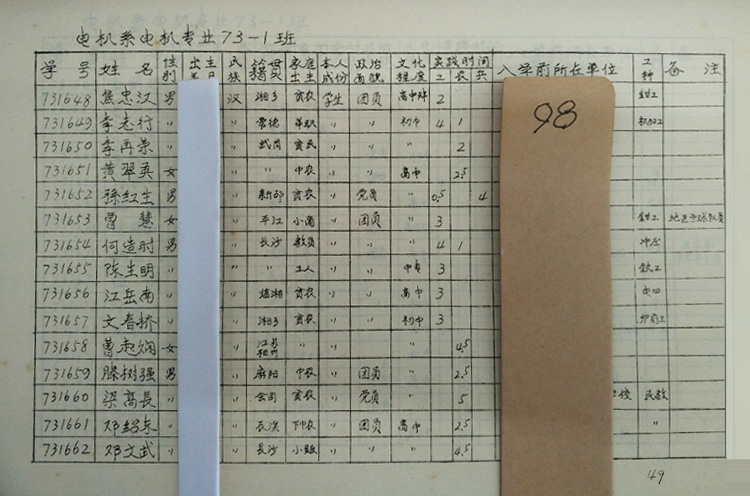 电机系电机专业73-1班
学号 姓名 性别 出生 民族 籍贯 家庭出生 本人成份 政治面貌 文化程度 实践时间 工 农 兵 入学前所在单位 工种 备注
98
731648 焦忠汉 男 汉 湘乡 贫农 学生 团员 高中 2 钳工
731649 李志行 〃 〃 常德 革职 〃 〃 初中 4 1 机加工
731650 李再荣 〃 〃 武岗 贫民 〃 〃 2
731651 黄翠英 女 〃 〃 中农 〃 〃 高中 2.5
731652 孙红生 男 〃 新邵 贫农 〃 党员 〃 0.5 4
731653 曾慧 女 〃 平江 小商 〃 团员 〃 3 钳工
731654 何造时 男 〃 长沙 教员 〃 〃 〃 4 1 冲压
731655 陈生明 〃 〃 〃 工人 〃 〃 中专 3 铁工
731656 江岳南 〃 〃 贫农 〃 〃 高中 3
731657 文春桥 〃 〃 湘乡 贫农 〃 〃 初中 3
731658 曹起炯 女 〃 江苏 〃 〃 〃 〃 4.5
731659 滕树强 男 〃 麻阳 中农 〃 团员 〃 2.5
731660 梁高长 〃 〃 会同 贫农 〃 党员 〃 5 学校 民教
731661 邓绍东 〃 〃 长沙 下中农 〃 团员 高中 2.5 〃
731662 邓文武 〃 〃 长沙 小贩 〃 〃 〃 4.5
49